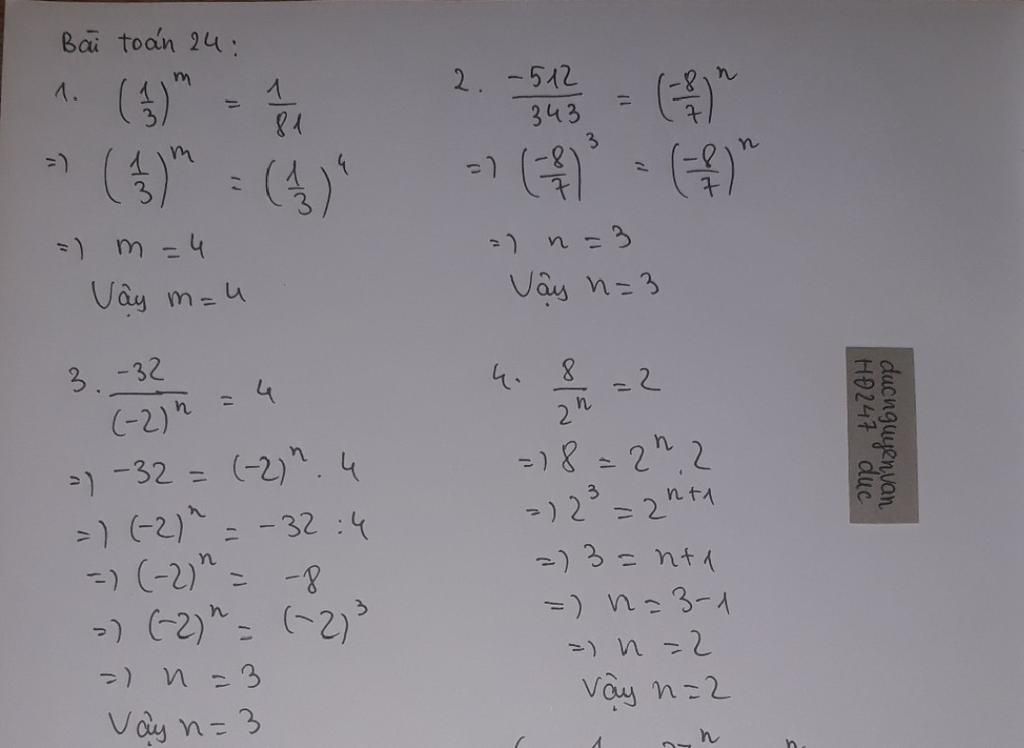 Bài toán 24:
1. (1/3)^m = 1/81
=> (1/3)^m = (1/3)^4
=> m = 4
Vậy m = 4
2. -512/343 = (-8/7)^n
=> (-8/7)^3 = (-8/7)^n
=> n = 3
Vậy n = 3
3. -32/(-2)^n = 4
=> -32 = (-2)^n . 4
=> (-2)^n = -32 : 4
=> (-2)^n = -8
=> (-2)^n = (-2)^3
=> n = 3
Vậy n = 3
4. 8/2^n = 2
=> 8 = 2^n . 2
=> 2^3 = 2^(n+1)
=> 3 = n+1
=> n = 3-1
=> n = 2
Vậy n = 2
ducnguyenvan
HĐ247 duc